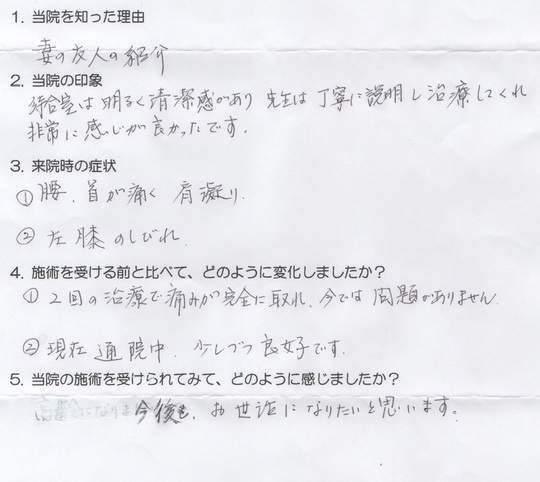 1. 当院を知った理由
妻の友人の紹介
2. 当院の印象
待合室は明るく清潔感があり 先生は丁寧に説明し治療してくれ
非常に感じが良かったです。
3. 来院時の症状
① 腰、首が痛く 肩凝り、
② 左膝のしびれ、
4. 施術を受ける前と比べて、どのように変化しましたか？
① 2回の治療で痛みが完全に取れ、今では問題がありません、
② 現在通院中、少しづつ良好です。
5. 当院の施術を受けられてみて、どのように感じましたか？
今後も、お世話になりたいと思います。